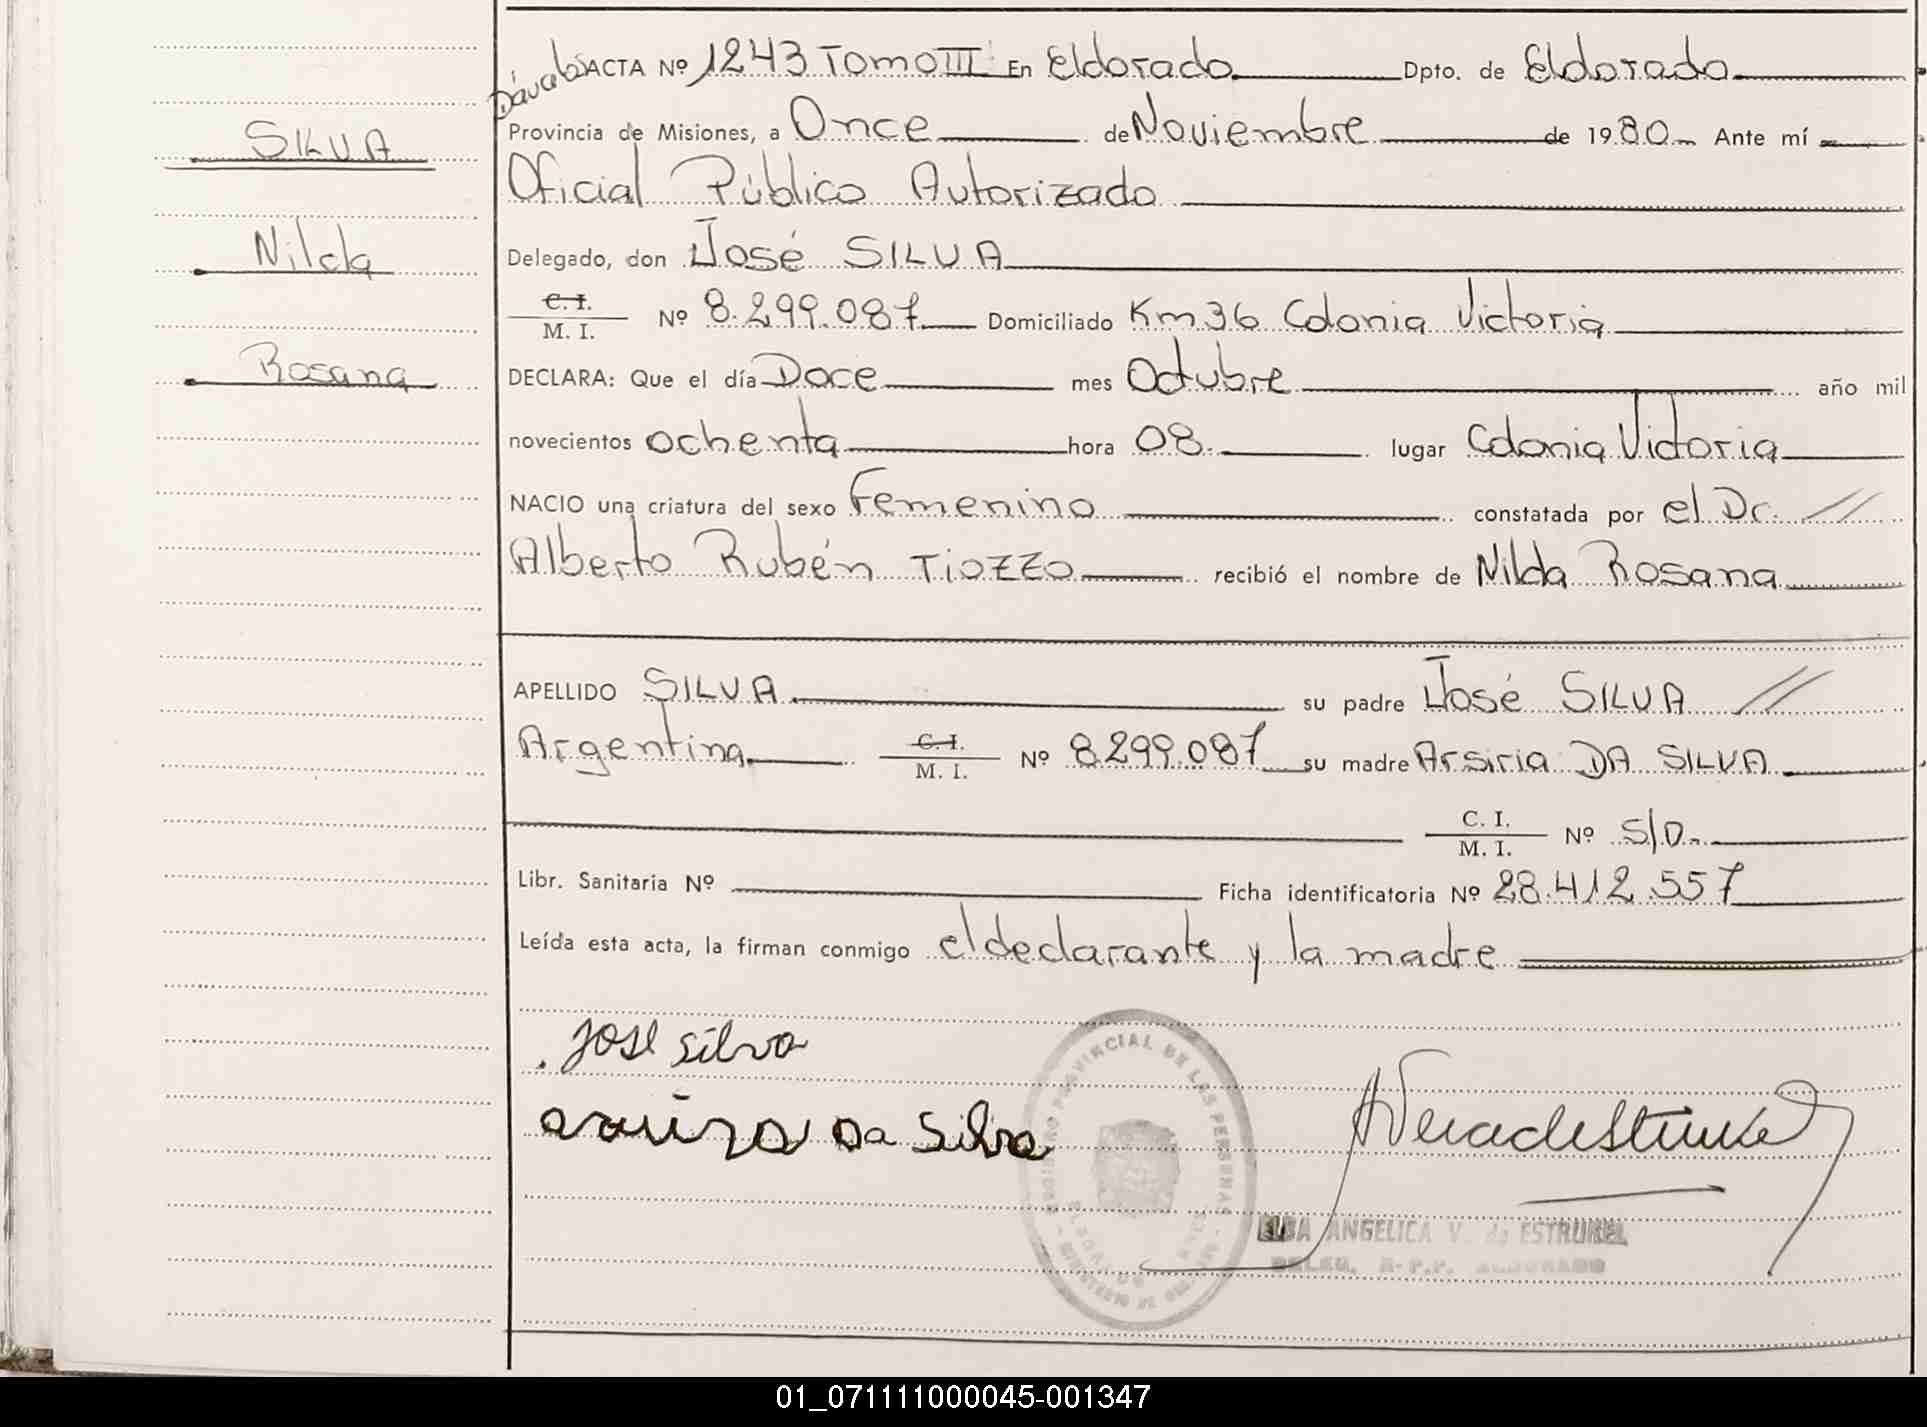 SILVA
Nilda
Rosana
ACTA Nº 1243 Tomo III En Eldorado Dpto. de Eldorado
Provincia de Misiones, a Once de Noviembre de 1980 Ante mí
Oficial Público Autorizado
Delegado, don José SILVA
C. I.
M. I. Nº 8.299.087 Domiciliado Km 36 Colonia Victoria
DECLARA: Que el día Doce mes Octubre año mil
novecientos ochenta hora 08. lugar Colonia Victoria
NACIO una criatura del sexo Femenino constatada por el Dr. //
Alberto Rubén TIOZZO recibió el nombre de Nilda Rosana
APELLIDO SILVA su padre José SILVA //
Argentina C. I.
M. I. Nº 8.299.087 su madre Arsiria DA SILVA
C. I.
M. I. Nº S/D.
Libr. Sanitaria Nº Ficha identificatoria Nº 28.412.557
Leída esta acta, la firman conmigo el declarante y la madre
José Silva
Da Silva
REGISTRO PROVINCIAL DE LAS PERSONAS
ELBA ANGELICA V. de ESTRUKEL
01_071111000045-001347